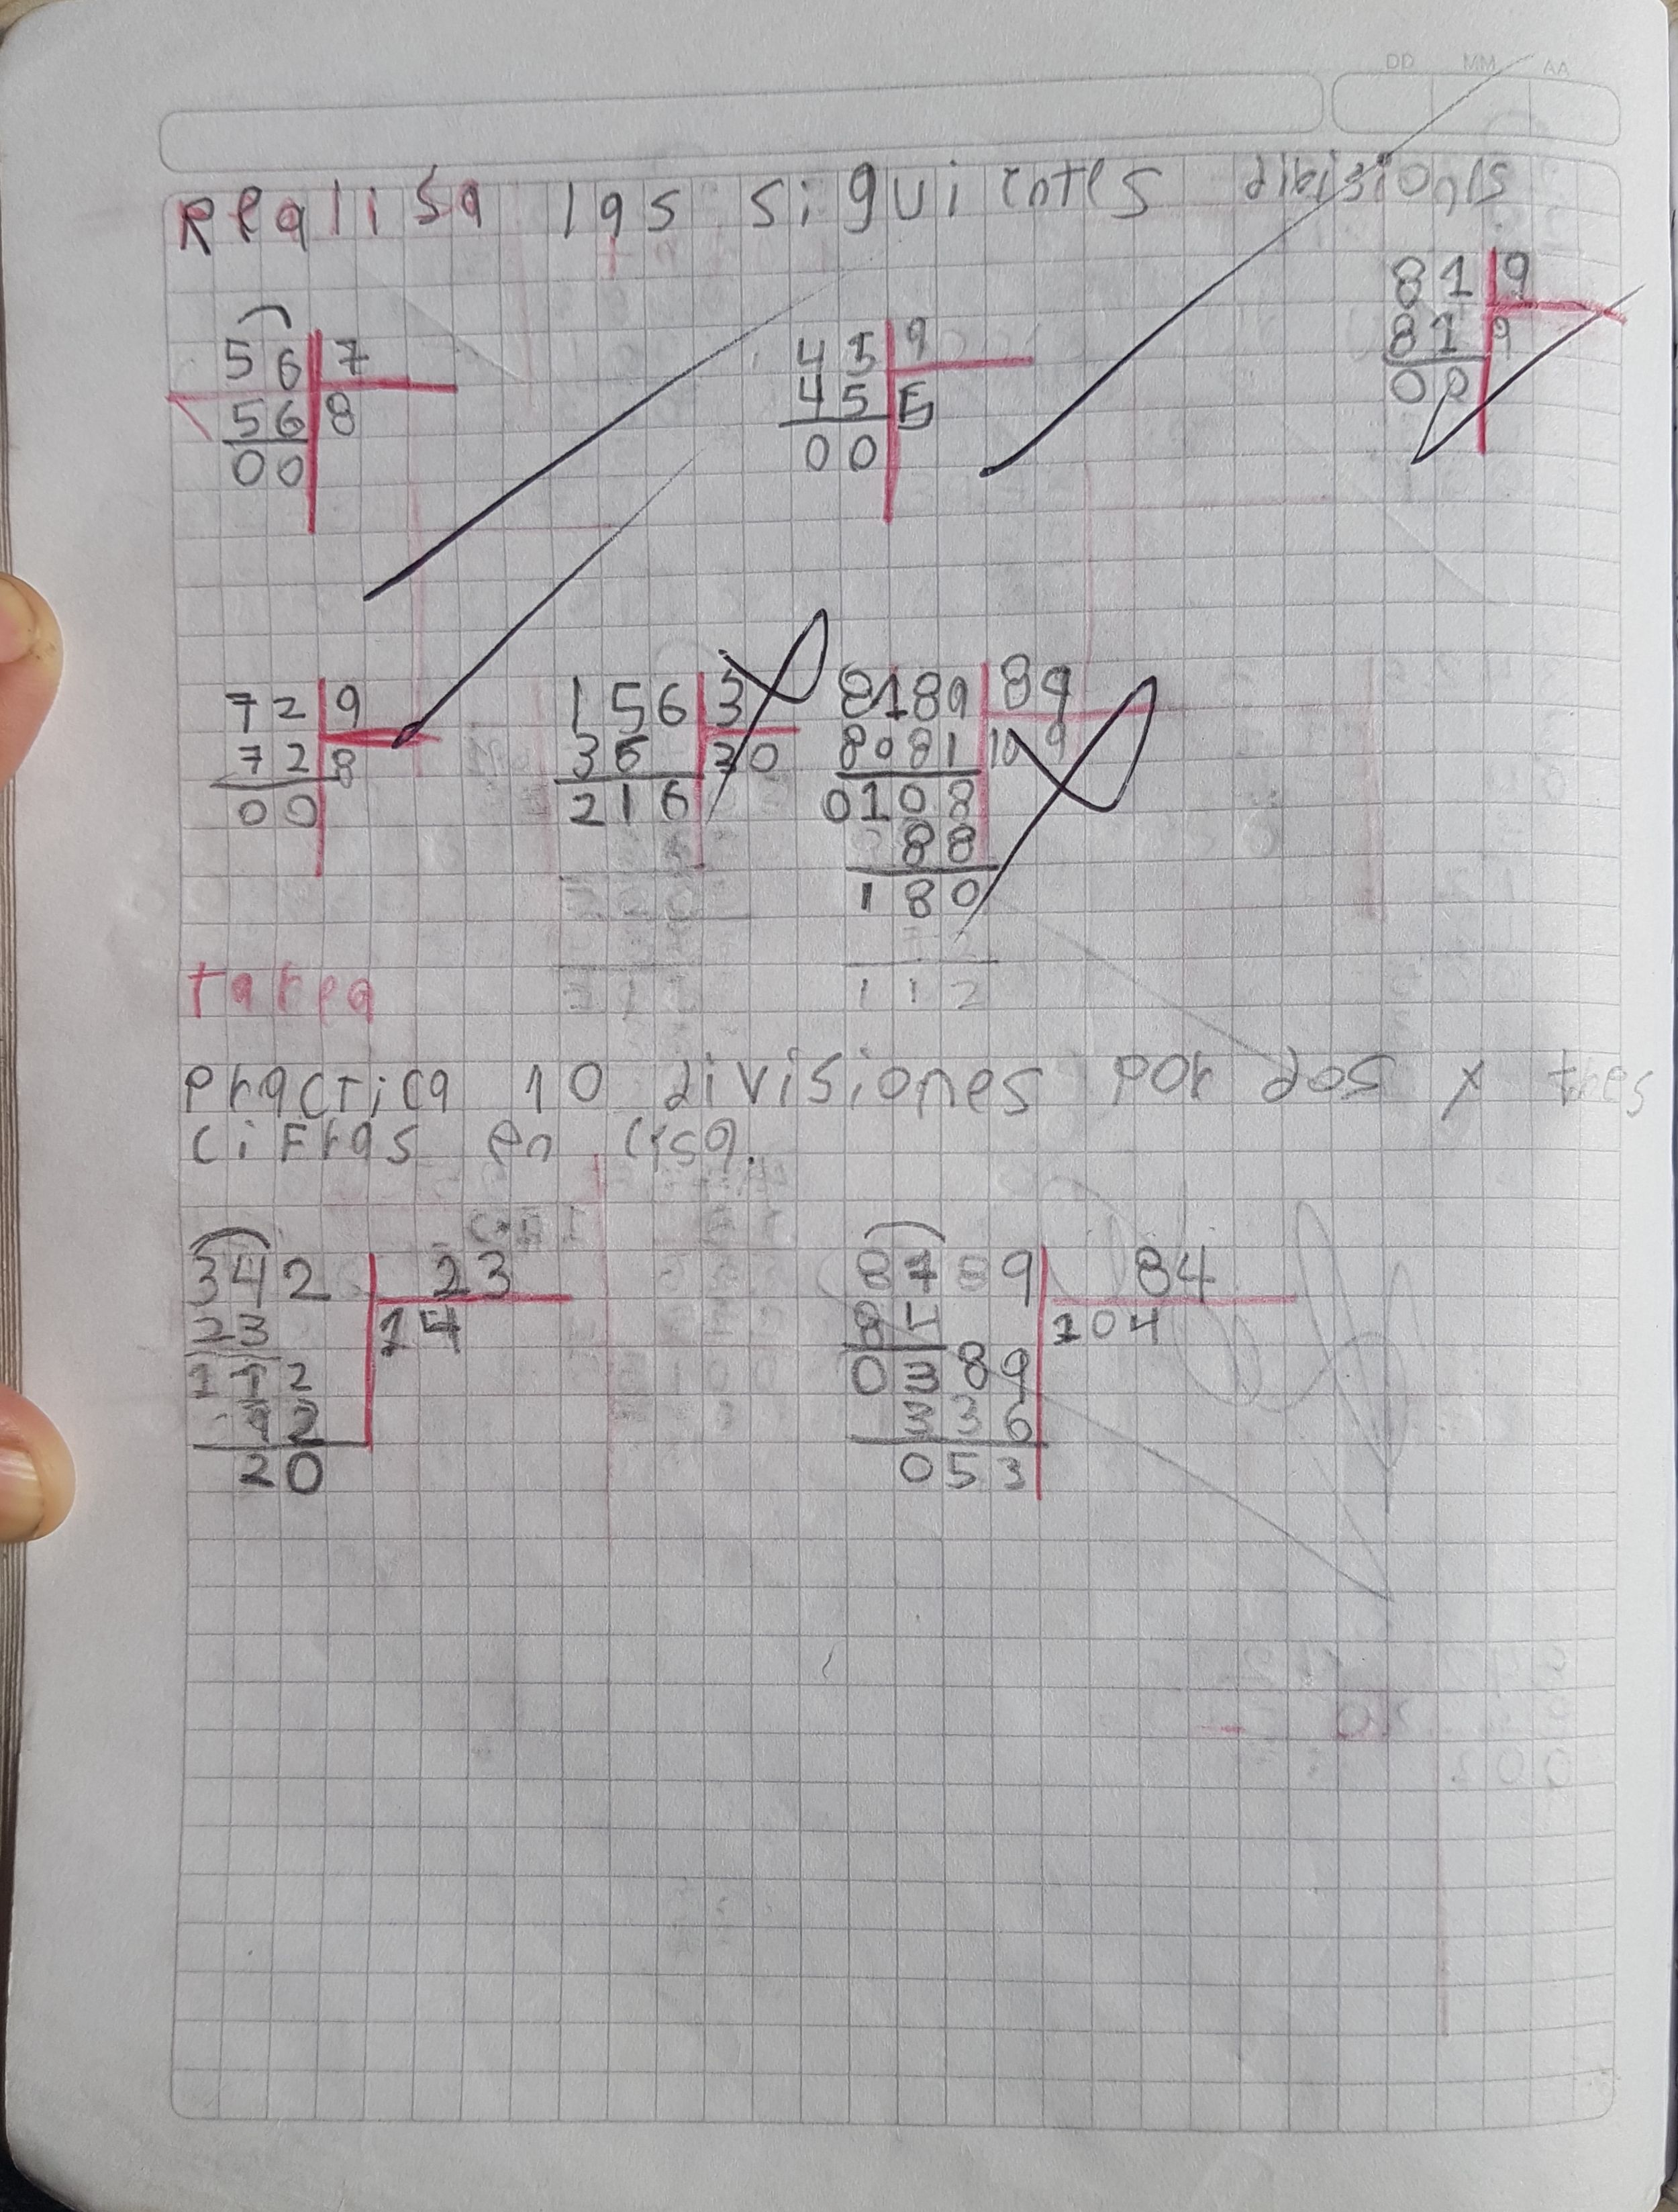 DD MM AA
Realisa las siguientes dibisions
56 7
56 8
00
45 9
45 5
00
81 9
81 9
00
72 9
72 8
00
156 3
36 30
216
8189 89
8081 109
0108
88
180
112
tarea
practica 10 divisiones por dos x tres
cifras en casa.
342 23
23 14
112
92
20
8789 84
84 104
0389
336
053